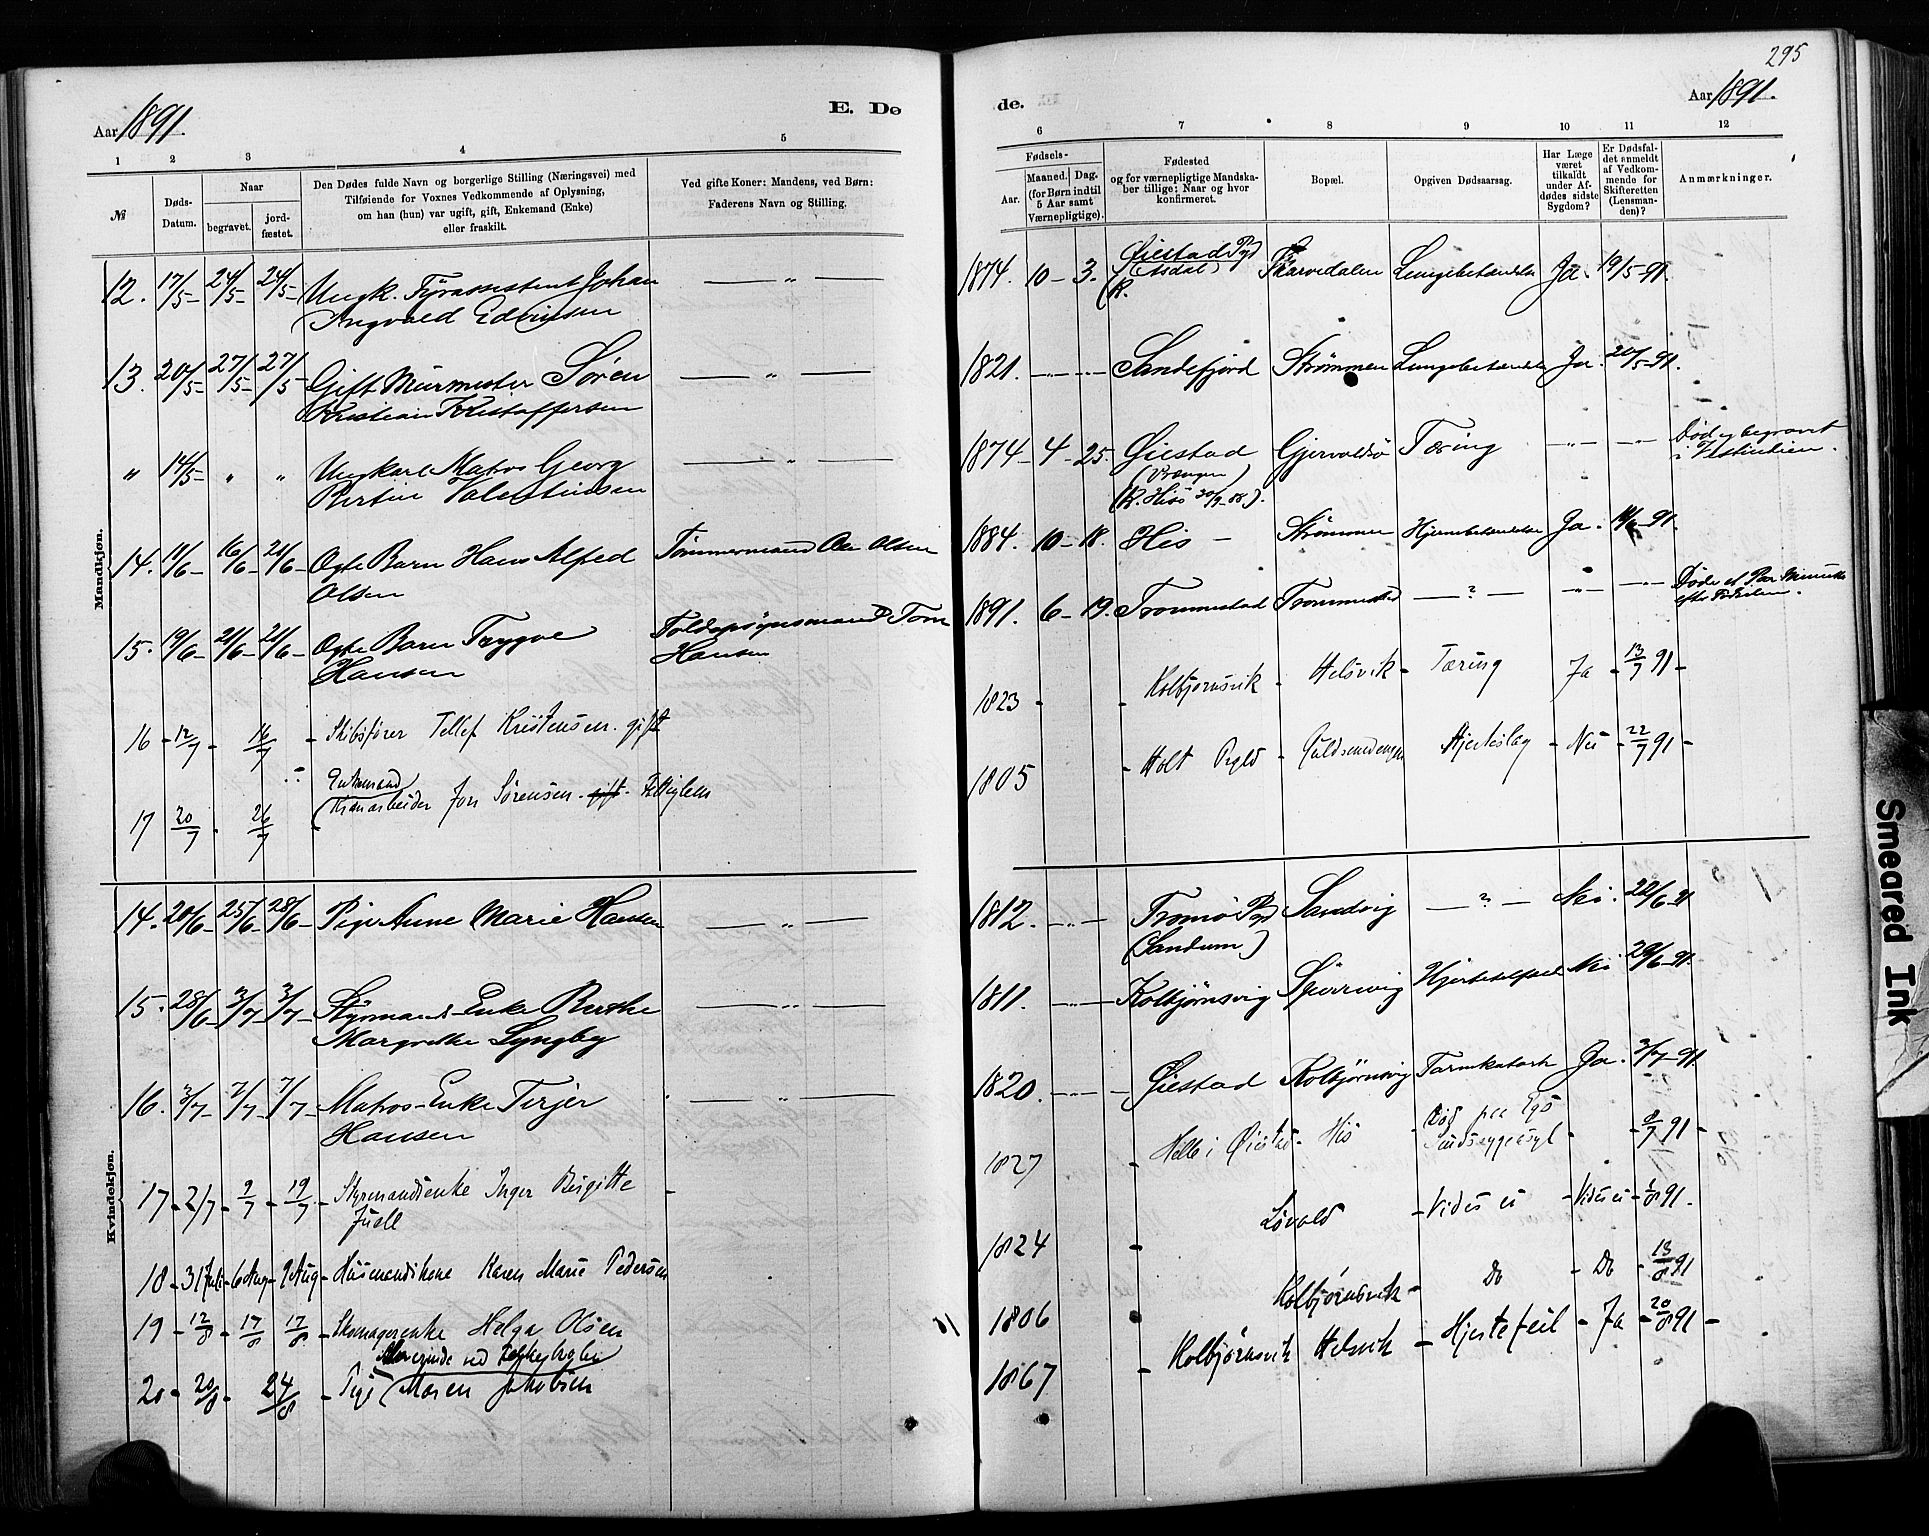 295
Aar 1891.
E. Dø
de.
Aar 1891.
1 2 3 4 5 6 7 8 9 10 11 12
№
Døds-
Datum.
Naar
begravet.
jord-
fæstet.
Den Dødes fulde Navn og borgerlige Stilling (Næringsvei) med
Tilføiende for Voxnes Vedkommende af Oplysning,
om han (hun) var ugift, gift, Enkemand (Enke)
eller fraskilt.
Ved gifte Koner: Mandens, ved Børn:
Faderens Navn og Stilling.
Fødsels-
Aar.
Maaned. Dag.
(for Børn indtil
5 Aar samt
Værnepligtige).
Fødested
og for værnepligtige Mandska-
ber tillige: Naar og hvor
konfirmeret.
Bopæl.
Opgiven Dødsaarsag.
Har Læge
været
tilkaldt
under Af-
dødes sidste
Sygdom?
Er Dødsfal-
det anmeldt
af Vedkom-
mende for
Skifteretten
(Lensman-
den)?
Anmærkninger.
Mandkjøn.
12. 17/5 - 24/5 - 24/5 - Ungk. Fyrassistent Johan — „ — 1874. 10 - 3. Øiestad Pgd Lungebetændelse Ja. 19/5-91.
Ingvald Edvinsen (Asdal)
13. 20/5 - 27/5 - 27/5 Gift Murmester Søren — „ — 1821. Sandefjord Strømmen Lungebetændelse Ja. 20/5-91.
Kristian Kristoffersen
„ 14/5 - „ „ Ungkarl Matros Georg — „ — 1874 - 4 - 25. Øiestad Gjervoldsø Tæring — „ — Død og begravet
Bertin Valentinsen
(K. Hisö 20/9-88).
14. 11/6 - 16/6 - 21/6 - Ogte Barn Hans Alfred Tømmermand Ole Olsen 1884. 10 - 18. His - Strømmen Hjernebetændelse Ja. 14/6-91.
Olsen
15. 19/6 - 21/6 - 21/6 - Ogte Barn Trygve Toldopsynsmand Tom 1891. 6 - 19. Trommestad Trommestad — ? — „ — Døde et Par Minutter
Hansen Hansen efter Fødselen.
16 - 12/7 - 16/7 - Skibsfører Tellef Kristensen. gift 1823 - Kolbjørnsvik - Helsvik - Tæring Ja - 13/7 91 -
Enkemand
17 20/7 - 26/7 - Jon Sørensen. gift. 1805 - Holt Pgld - Hjerteslag - Nei - 22/7 91 -
Kvindekjøn.
14. 20/6 - 25/6 - 28/6 - Pige Anne Marie Hansen — „ — 1812. Tromø Pgd Sandvig — ? — Nei. 22/6-91
(Sandum)
15. 28/6 - 3/7 - 3/7 - Styrmands-Enke Berthe — „ — 1811. Kolbjørnsvig Spærrevig Hjertefeil Nei 29/6-91.
Margrethe Lyngby
16. 3/7 - 7/7 - 7/7 - Matros-Enke Terjer — „ — 1820. Øiestad Kolbjørnsvig Tarmkatarh Ja. 3/7-91
Hansen
17 - 2/7 - 9/7 - 19/7 - Styrmandsenke Inger Birgitte - 1827 - Helle i Øiestad - His - Død paa Egø - 8/7 91 -
Juell Sindssygeasyl
18 - 31 Juli - 6 Aug - 9 Aug - Husmandskone Karen Marie Pedersen 1824 - Løvold - Vides ei - Vides ei - 1/8 91 -
19 - 12/8 - 17/8 - 17/8 - Skomagerenke Helga Olsen 1806 Kolbjørnsvik - Do - Do - 13/8 91
20 - 20/8 - 24/8 - Pige Maren Jakobsen 1867 - Kolbjørnsvik Helsvik - Hjertefeil - Ja - 20/8 91 -
Smeared Ink